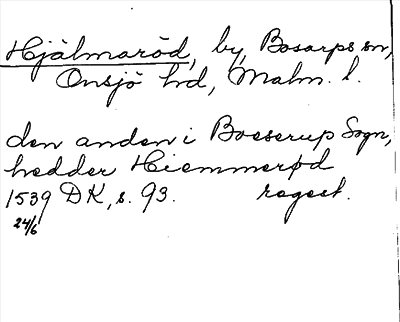 Hjälmaröd, by, Bosarps sn,
Onsjö hd, Malm. l.
den anden i Bosserup Sogn,
hedder Hiemmerød
1539 DK, s. 93. regest.
24/6